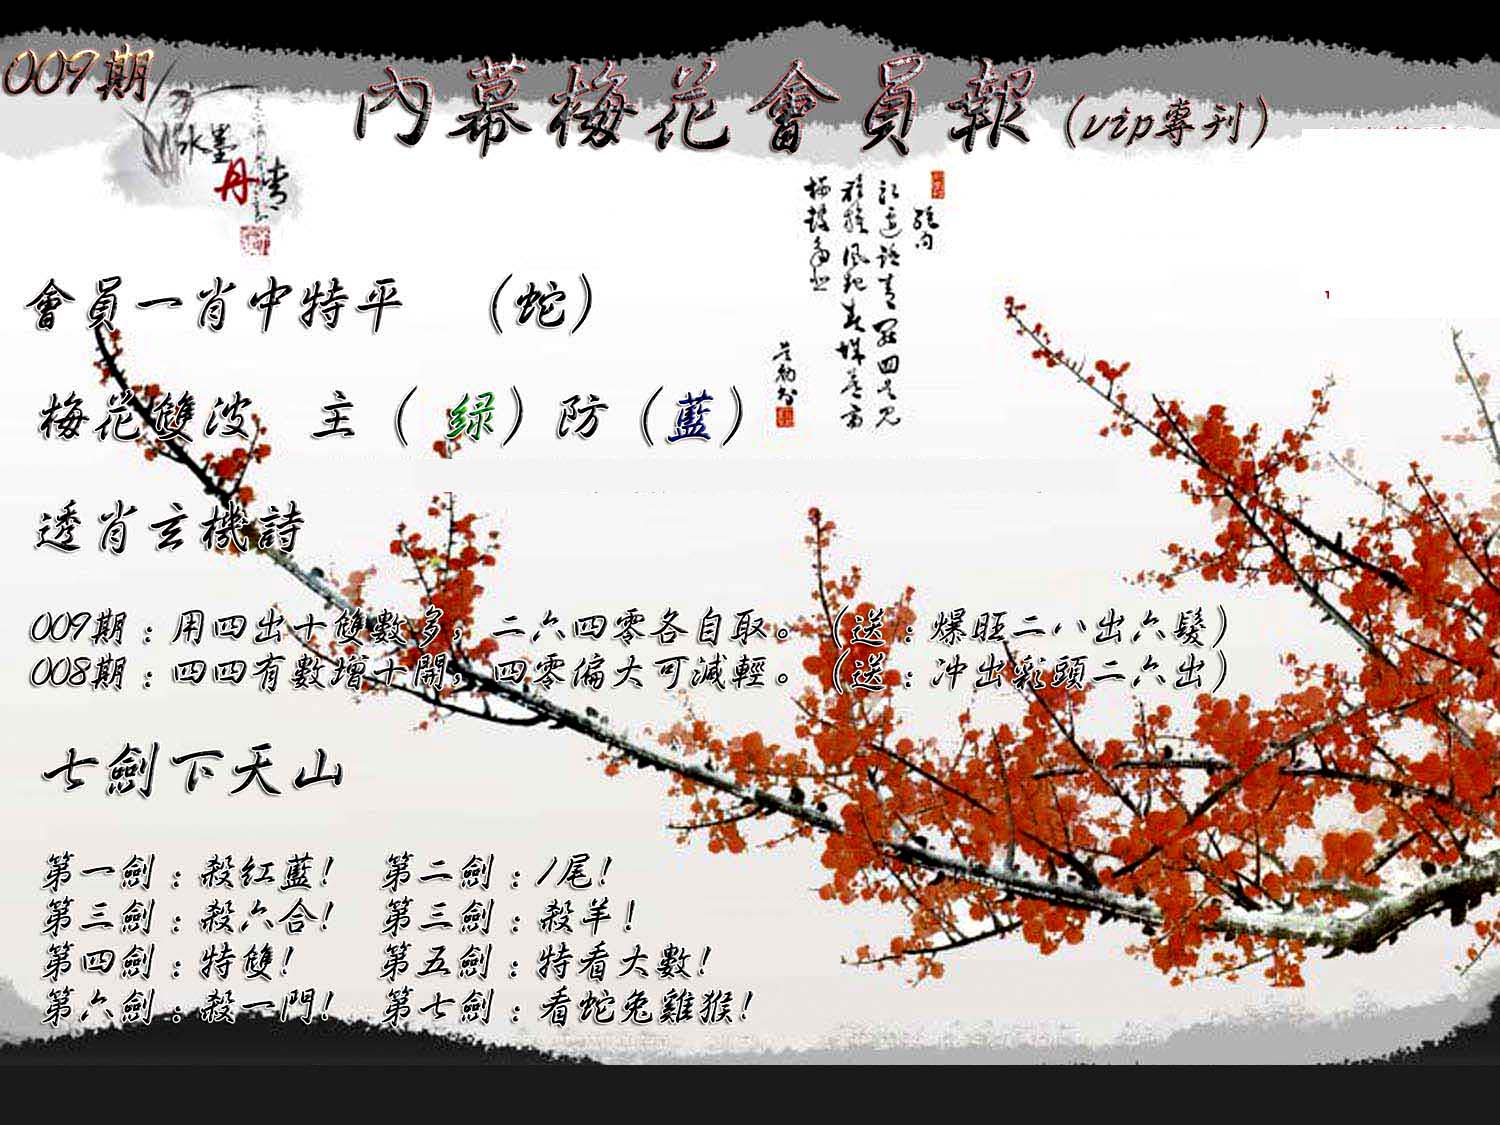 009期
內幕梅花會員報(vip專刊)
水墨
丹青
會員一肖中特平 (蛇)
梅花雙波 主(綠)防(藍)
透肖玄機詩
009期:用四出十雙數多,二六四零各自取。(送:爆旺二八出六髮)
008期:四四有數增十開,四零偏大可減輕。(送:冲出彩頭二六出)
七劍下天山
第一劍:殺紅藍! 第二劍:1尾!
第三劍:殺六合! 第三劍:殺羊!
第四劍:特雙! 第五劍:特看大數!
第六劍:殺一門! 第七劍:看蛇兔雞猴!